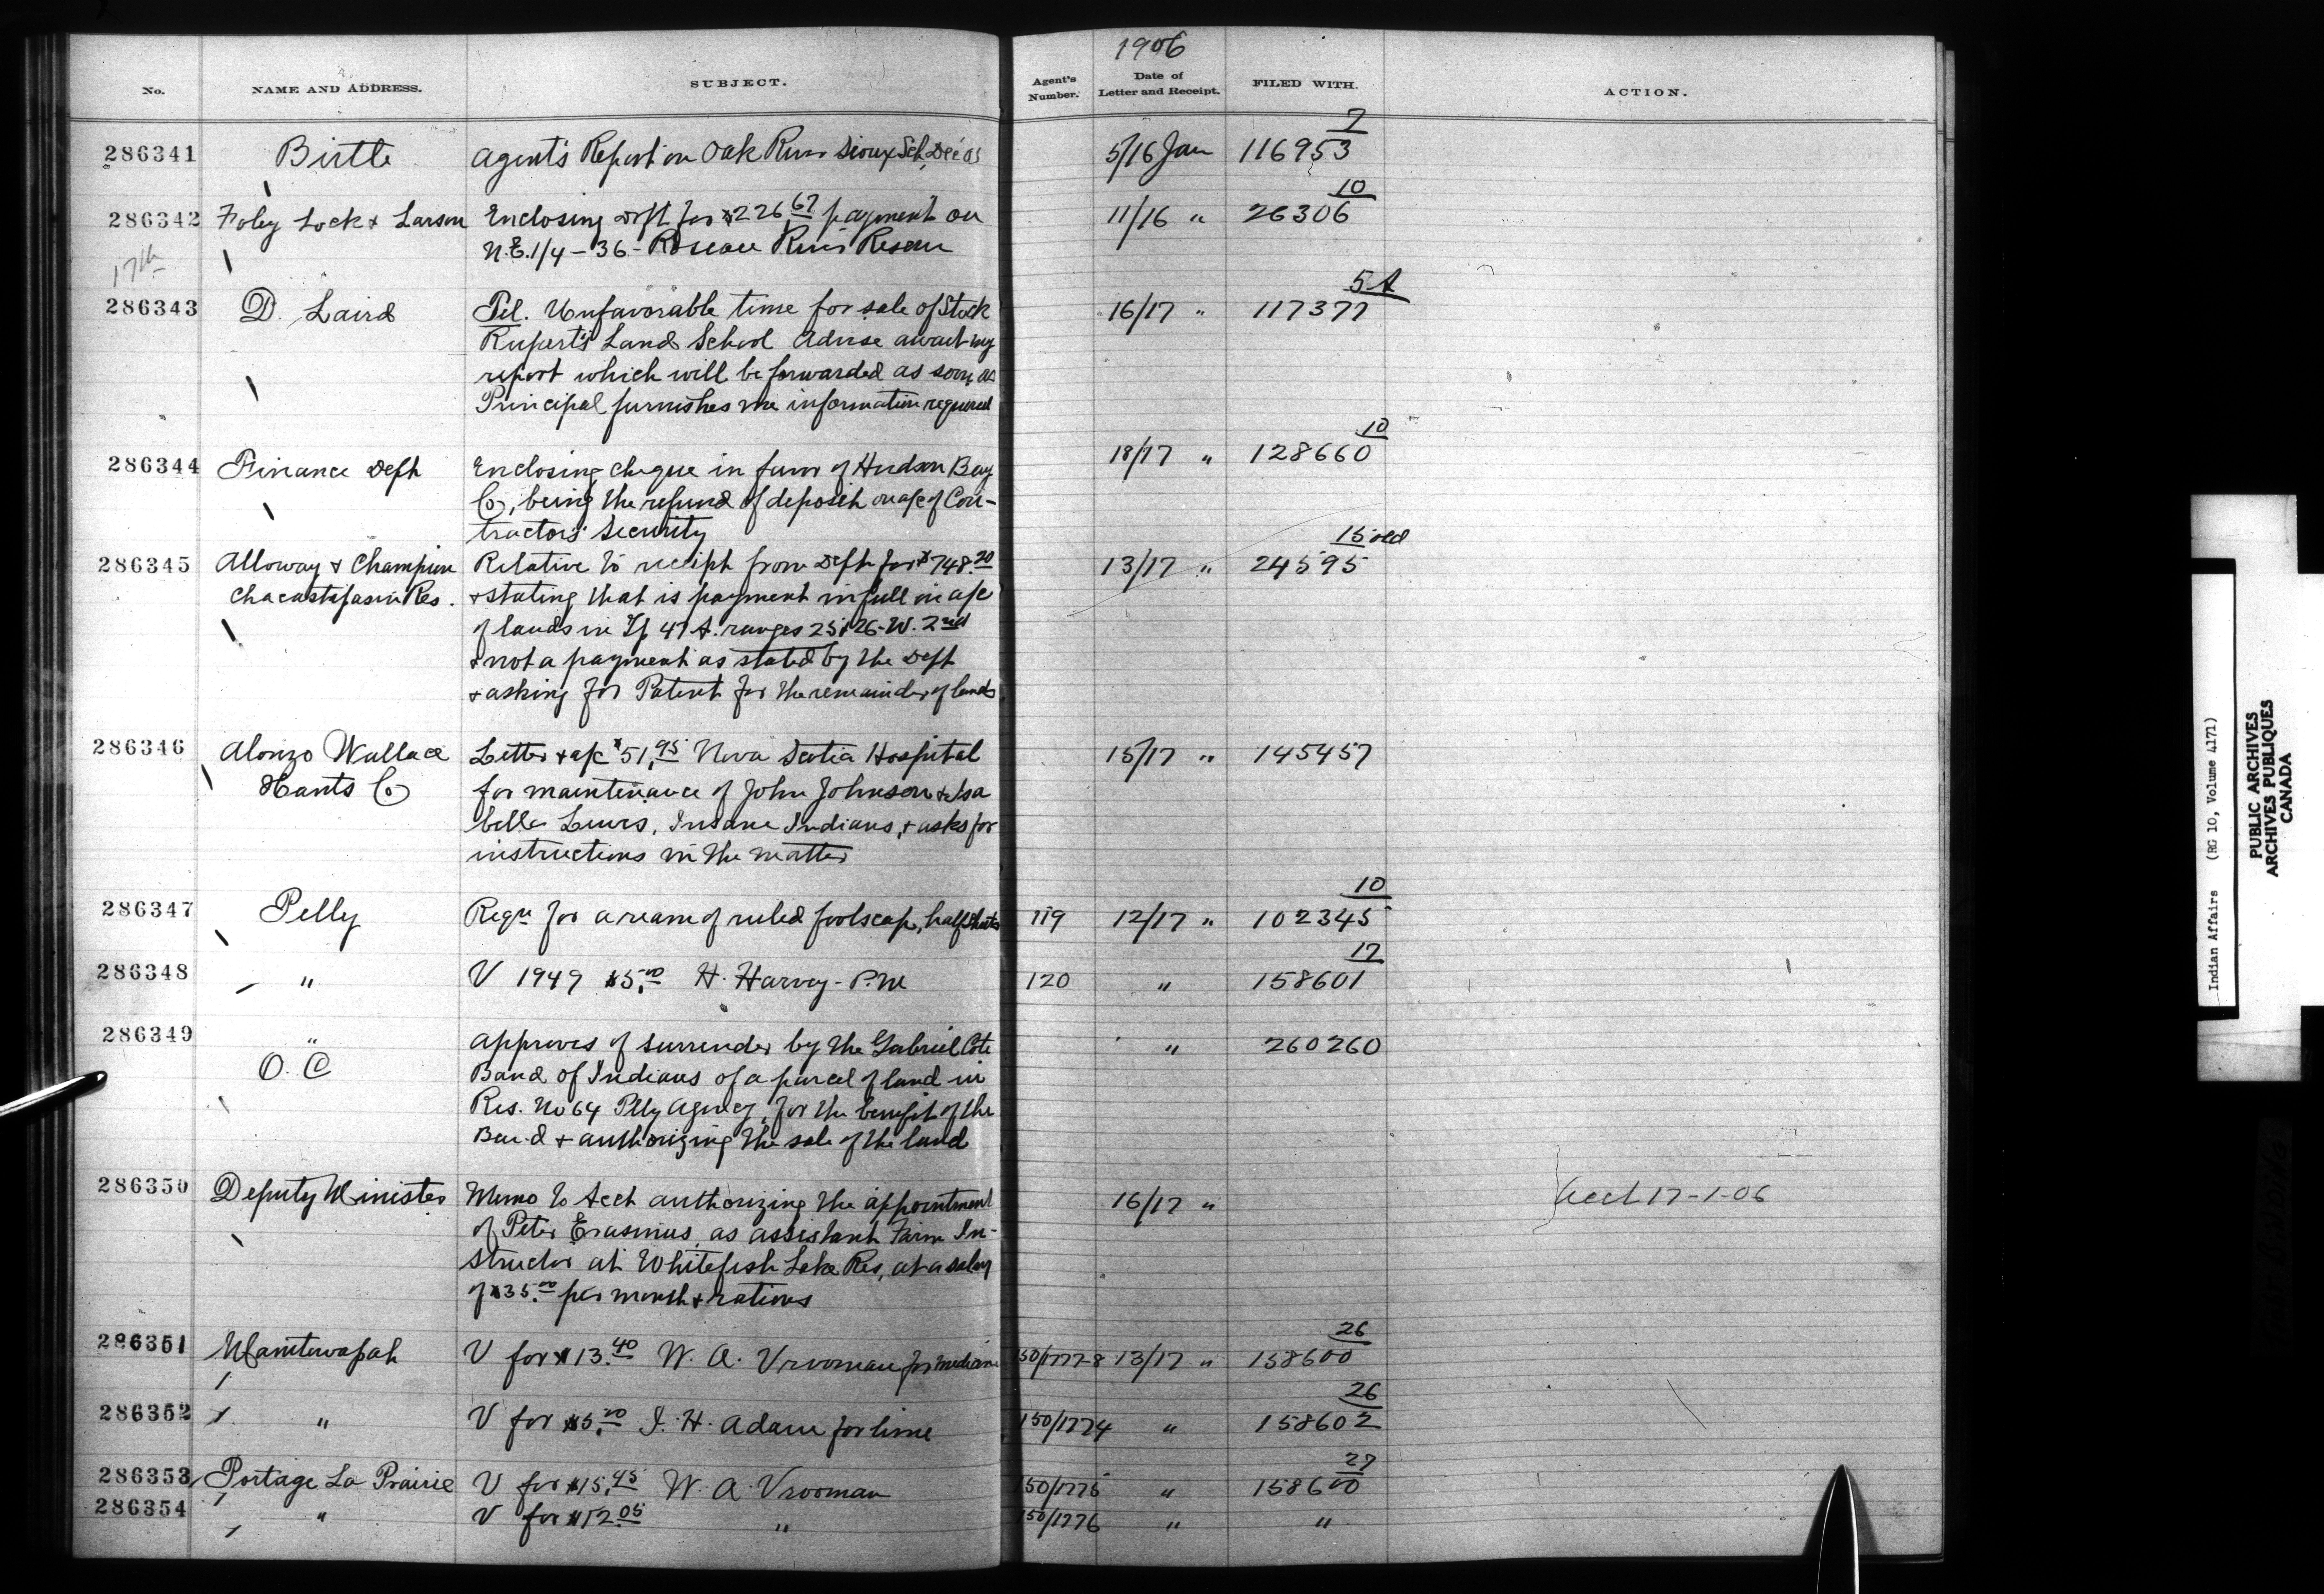 1906
No. NAME AND ADDRESS. SUBJECT. Agent's Number. Date of Letter and Receipt. FILED WITH. ACTION.
7
286341 Birtle Agent's Report on Oak River Sioux Sch, Dec'05 5/16 Jan 116953
10
286342 Foley Lock & Larson Enclosing Dft for $226.67 payment on 11/16 " 26306
N.E.1/4 - 36 - Roseau River Reserve
17th
5A
286343 D. Laird Tel. Unfavorable time for sale of Stock 16/17 " 117377
Rupert's Land School Advise await my
report which will be forwarded as soon as
Principal furnishes me information required
10
286344 Finance Dept Enclosing cheque in favor of Hudson Bay 18/17 " 128660
Co, being the refund of deposit on a/c of Con-
tractors' Security
15 old
286345 Alloway & Champion Relative to receipt from Dept for $748.20 13/17 " 24595
Chacastapasin Res. & stating that is payment in full in a/c
of lands in Tp. 47 A. ranges 25 & 26-W. 2nd
& not a payment as stated by the Dept
& asking for Patent for the remainder of lands
286346 Alonzo Wallace Letter & a/c $51.95 Nova Scotia Hospital 15/17 " 145457
Hants Co for maintenance of John Johnson & Isa
bella Lewis, Insane Indians, & asks for
instructions in the matter
10
286347 Pelly Reqn for a ream of ruled foolscap, half sheets 119 12/17 " 102345
17
286348 " V 1949 $5.00 H. Harvey - P.M 120 " 158601
286349 " Approves of surrender by the Gabriel Cote " 260260
O. C Band of Indians of a parcel of land in
Res. No 64 Pelly Agency, for the benefit of the
Band & authorizing the sale of the land
286350 Deputy Minister Memo to Acct authorizing the appointment 16/17 " Acct 17-1-06
of Peter Erasmus, as assistant Farm In-
structor at Whitefish Lake Res, at a salary
of $35.00 per month & rations
26
286351 Manitowapah V for $13.40 W. A. Vrooman for medicine 150/1777-8 13/17 " 158600
26
286352 " V for $5.00 J. H. Adam for lime 150/1774 " 158602
27
286353 Portage La Prairie V for $15.45 W. A. Vrooman 150/1775 " 158600
286354 " V for $12.05 " 150/1776 " "
Indian Affairs (RG 10, Volume 4171)
PUBLIC ARCHIVES
ARCHIVES PUBLIQUES
CANADA